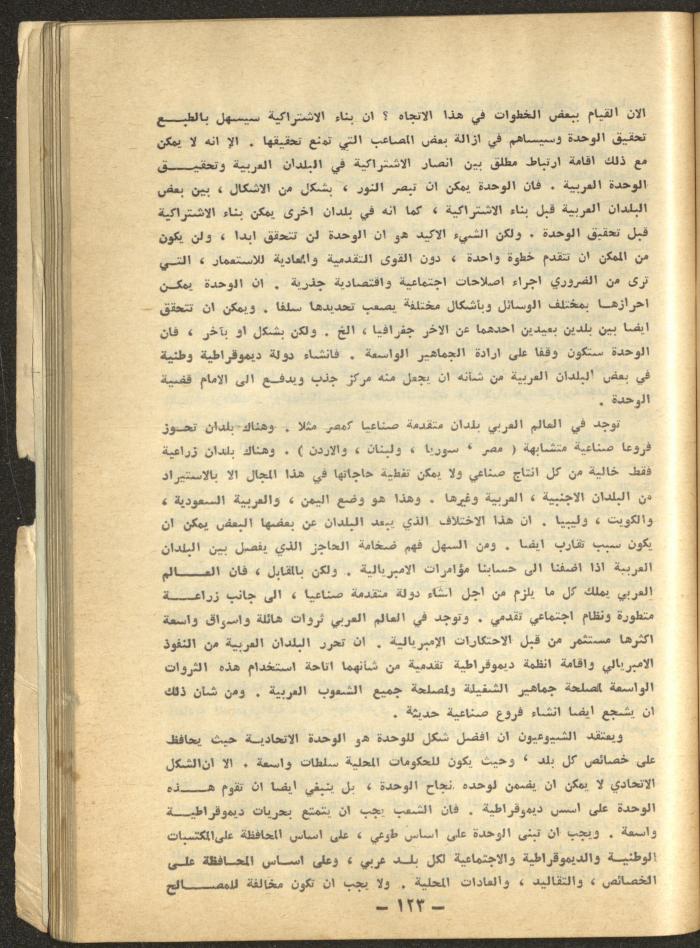 الان القيام ببعض الخطوات في هذا الاتجاه ؟ ان بناء الاشتراكية سيسهل بالطبـــع
تحقيق الوحدة وسيساهم في ازالة بعض المصاعب التي تمنع تحقيقها . الا انه لا يمكن
مع ذلك اقامة ارتباط مطلق بين انصار الاشتراكية في البلدان العربية وتحقيـــق
الوحدة العربية . فان الوحدة يمكن ان تبصر النور ، بشكل من الاشكال ، بين بعض
البلدان العربية قبل بناء الاشتراكية ، كما انه في بلدان اخرى يمكن بناء الاشتراكية
قبل تحقيق الوحدة . ولكن الشيء الاكيد هو ان الوحدة لن تتحقق ابدا ، ولن يكون
من الممكن ان تتقدم خطوة واحدة ، دون القوى التقدمية والمعادية للاستعمار ، التـــي
ترى من الضروري اجراء اصلاحات اجتماعية واقتصادية جذرية . ان الوحدة يمكــن
احرازهـا بمختلف الوسائل وبأشكال مختلفة يصعب تحديدها سلفا . ويمكن ان تتحقق
ايضا بين بلدين بعيدين احدهما عن الاخر جغرافيا ، الخ . ولكن بشكل او بآخر ، فان
الوحدة ستكون وقفا على ارادة الجماهير الواسعة . فانشاء دولة ديموقراطية وطنية
في بعض البلدان العربية من شأنه ان يجعل منه مركز جذب ويدفــع الى الامام قضية
الوحدة .
توجد في العالم العربي بلدان متقدمة صناعيا كمصر مثلا . وهناك بلدان تحــوز
فروعا صناعية متشابهة ( مصر ، سوريا ، ولبنان ، والاردن ) . وهناك بلدان زراعية
فقط خالية من كل انتاج صناعي ولا يمكن تغطية حاجاتها في هذا المجال الا بالاستيراد
من البلدان الاجنبية ، العربية وغيرها . وهذا هو وضع اليمن ، والعربية السعودية ،
والكويت ، وليبيا . ان هذا الاختلاف الذي يبعد البلدان عن بعضها البعض يمكن ان
يكون سبب تقارب ايضا . ومن السهل فهم ضخامة الحاجز الذي يفصل بين البلدان
العربية اذا اضفنا الى حسابنا مؤامرات الامبريالية . ولكن بالمقابل ، فان العـــالم
العربي يملك كل ما يلزم من اجل انشاء دولة متقدمة صناعيا ، الى جانب زراعـــة
متطورة ونظام اجتماعي تقدمي . وتوجد في العالم العربي ثروات هائلة واسواق واسعة
اكثرها مستثمر من قبل الاحتكارات الامبريالية . ان تحرر البلدان العربية من النفوذ
الامبريالي واقامة انظمة ديموقراطية تقدمية من شأنهما اتاحة استخدام هذه الثروات
الواسعة لمصلحة جماهير الشغيلة ولمصلحة جميع الشعوب العربية . ومن شأن ذلك
ان يشجع ايضا انشاء فروع صناعية حديثة .
ويعتقد الشيوعيون ان افضل شكل للوحدة هو الوحدة الاتحادية حيث يحافظ
على خصائص كل بلد ، وحيث يكون للحكومات المحلية سلطات واسعة . الا ان الشكل
الاتحادي لا يمكن ان يضمن لوحده نجاح الوحدة ، بل ينبغي ايضا ان تقوم هـــذه
الوحدة على اسس ديموقراطية . فان الشعب يجب ان يتمتع بحريات ديموقراطيـــة
واسعة . ويجب ان تبنى الوحدة على اساس طوعي ، على اساس المحافظة على المكتسبات
الوطنيـة والديموقراطية والاجتماعية لكل بلــد عربي ، وعلى اســاس المحــافظة علــى
الخصائص ، والتقاليد ، والعادات المحلية . ولا يجب ان تكون مخالفة للمصـــالح
– ١٢٣ –